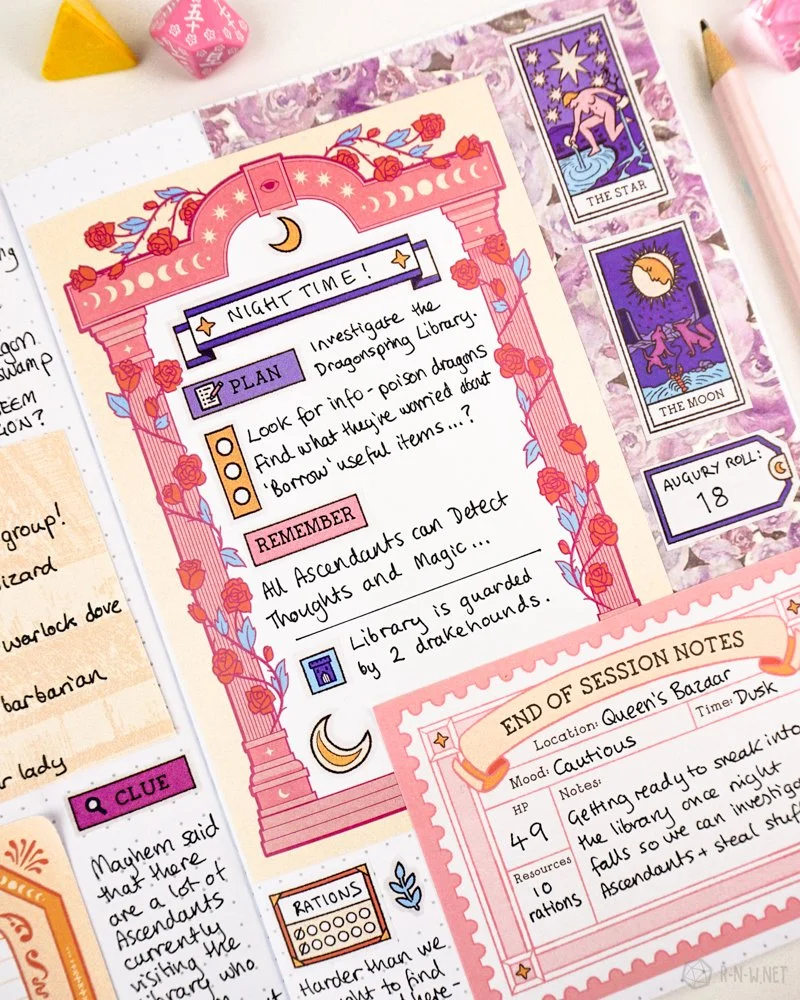 五
THE STAR
THE MOON
AUGURY ROLL:
18
NIGHT TIME!
PLAN
Investigate the
Dragonspring Library.
Look for info - poison dragons
Find what they're worried about
'Borrow' useful items...?
REMEMBER
All Ascendants can Detect
Thoughts and Magic...
Library is guarded
by 2 drakehounds.
SWAMP
group!
warlock dove
barbarian
lady
CLUE
Mayhem said
that there
are a lot of
Ascendants
currently
visiting the
library who
RATIONS
Harder than we
to find
END OF SESSION NOTES
Location: Queen's Bazaar
Time: Dusk
Mood: Cautious
HP
49
Resources
10
rations
Notes:
Getting ready to sneak into
the library once night
falls so we can investigate
Ascendants + steal stuff
R-N-W.NET